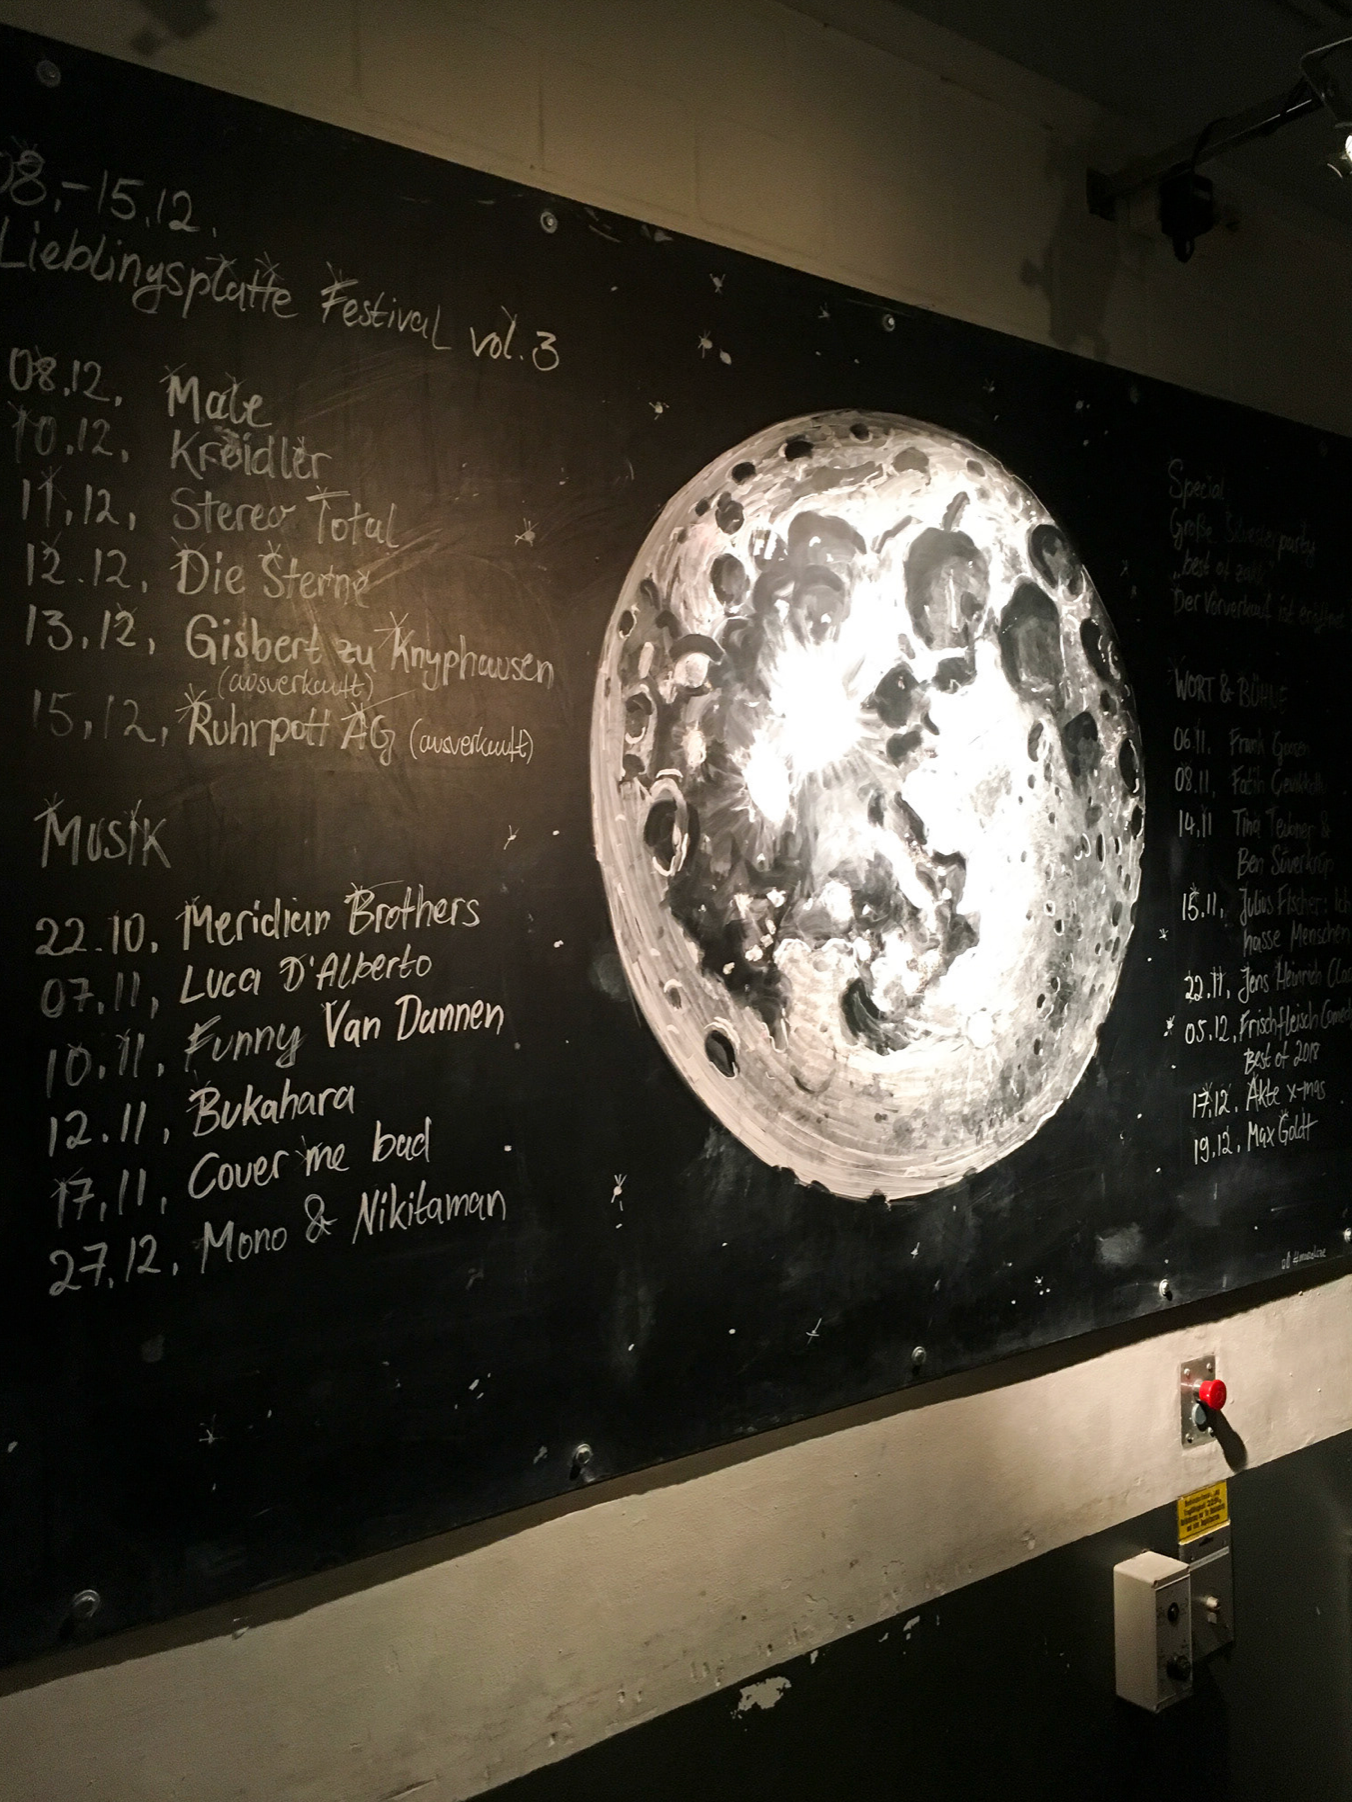 08.-15.12.
Lieblingsplatte Festival vol.3
08.12. Male
10.12. Kreidler
11.12. Stereo Total
12.12. Die Sterne
13.12. Gisbert zu Knyphausen
(ausverkauft)
15.12. Ruhrpott AG (ausverkauft)
MUSIK
22.10. Meridian Brothers
07.11. Luca D'Alberto
10.11. Funny Van Dannen
12.11. Bukahara
17.11. Cover me bad
27.12. Mono & Nikitaman
Special
Große Silvesterparty
"best of zakk"
Der Vorverkauf ist eröffnet
WORT & BÜHNE
06.11. Frank Goosen
08.11. Fatih
14.11 Tina Teubner &
Ben Süverkrüp
15.11. Julius Fischer: Ich
hasse Menschen
22.11. Jens Heinrich Claa
05.12. Frischfleisch Comed
Best of 2018
17.12. Akte x-mas
19.12. Max Goldt